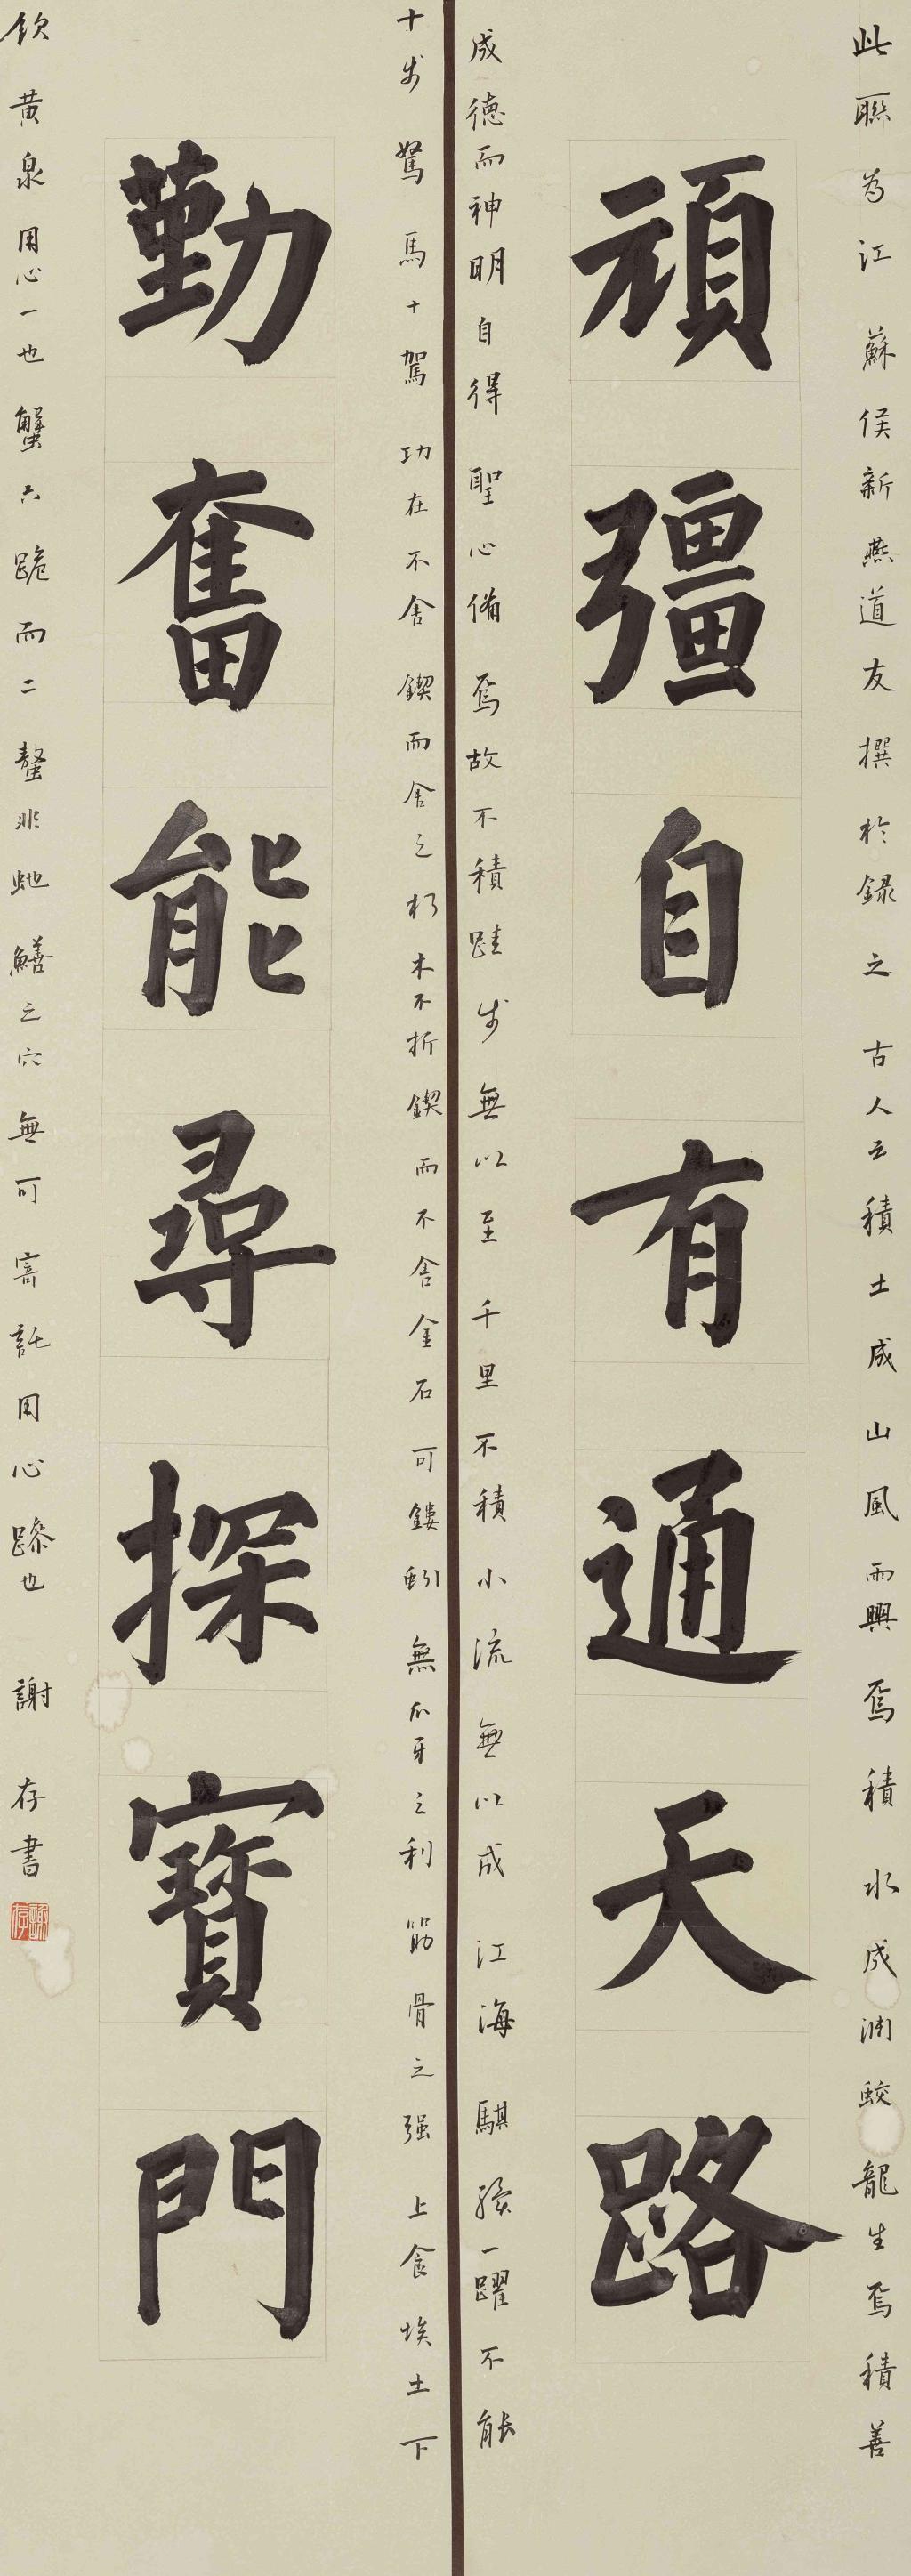 此聯為江蘇侯新燕道友撰於録之 古人云積土成山風雨興焉積水成淵蛟龍生焉積善
頑彊自有通天路
成德而神明自得聖心備焉故不積跬步無以至千里不積小流無以成江海騏驥一躍不能
十步駑馬十駕功在不舍鍥而舍之朽木不折鍥而不舍金石可鏤蚓無爪牙之利筋骨之强上食埃土下
勤奮能尋探寶門
飲黄泉用心一也蟹六跪而二螯非虵鱔之穴無可寄託用心躁也 謝存書
謝存